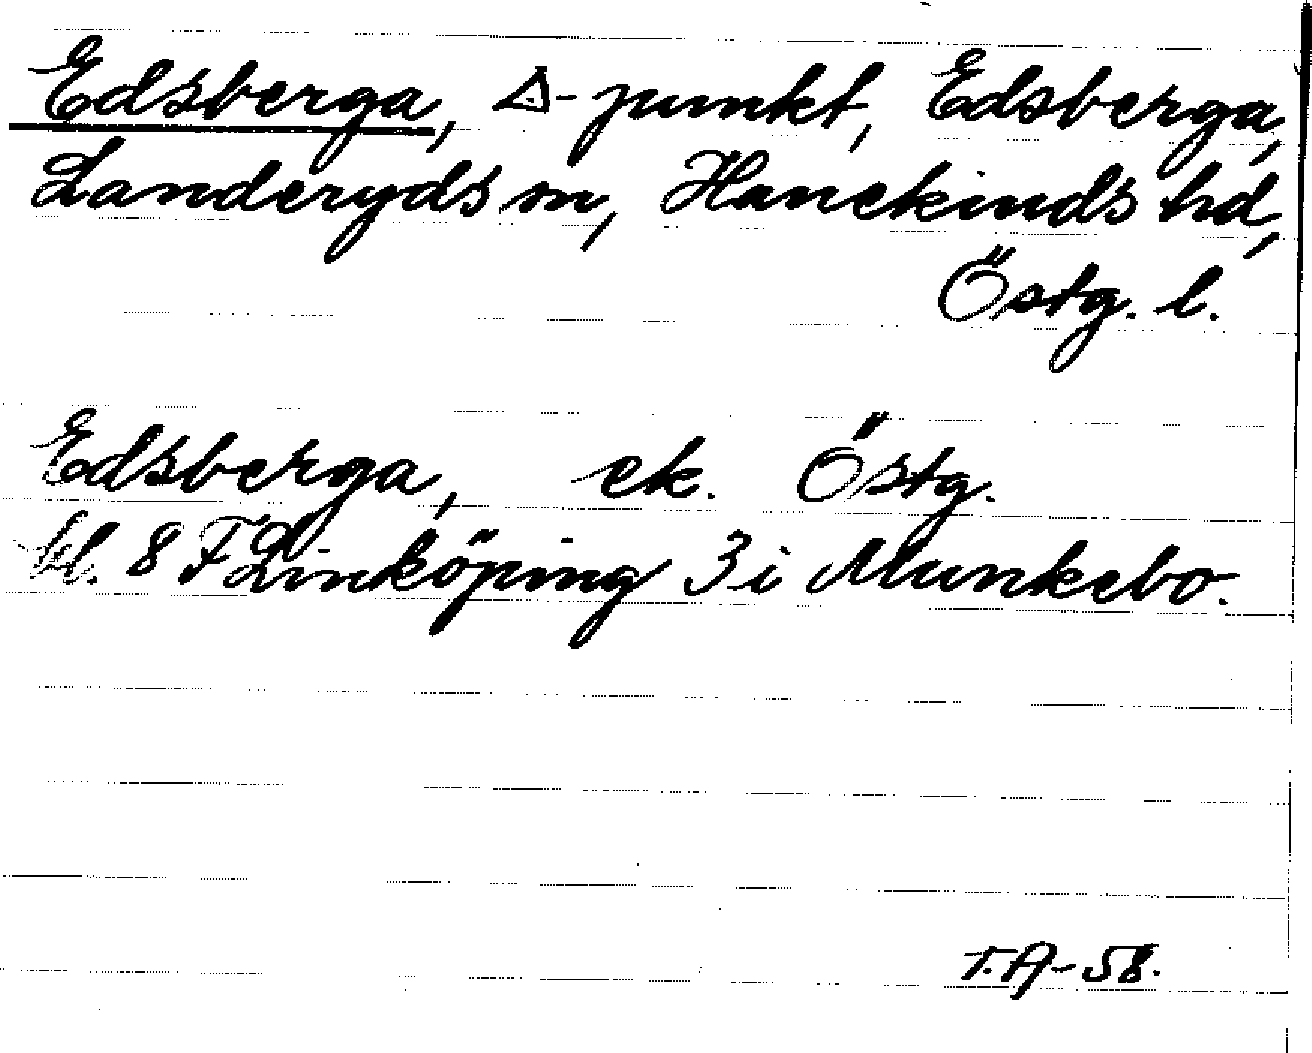 Edsberga, Δ-punkt, Edsberga,
Landeryds sn, Hanekinds hd,
Östg. l.
Edsberga, ek. Östg.
bl. 8 F Linköping 3 i Munkebo.
T.A-58.